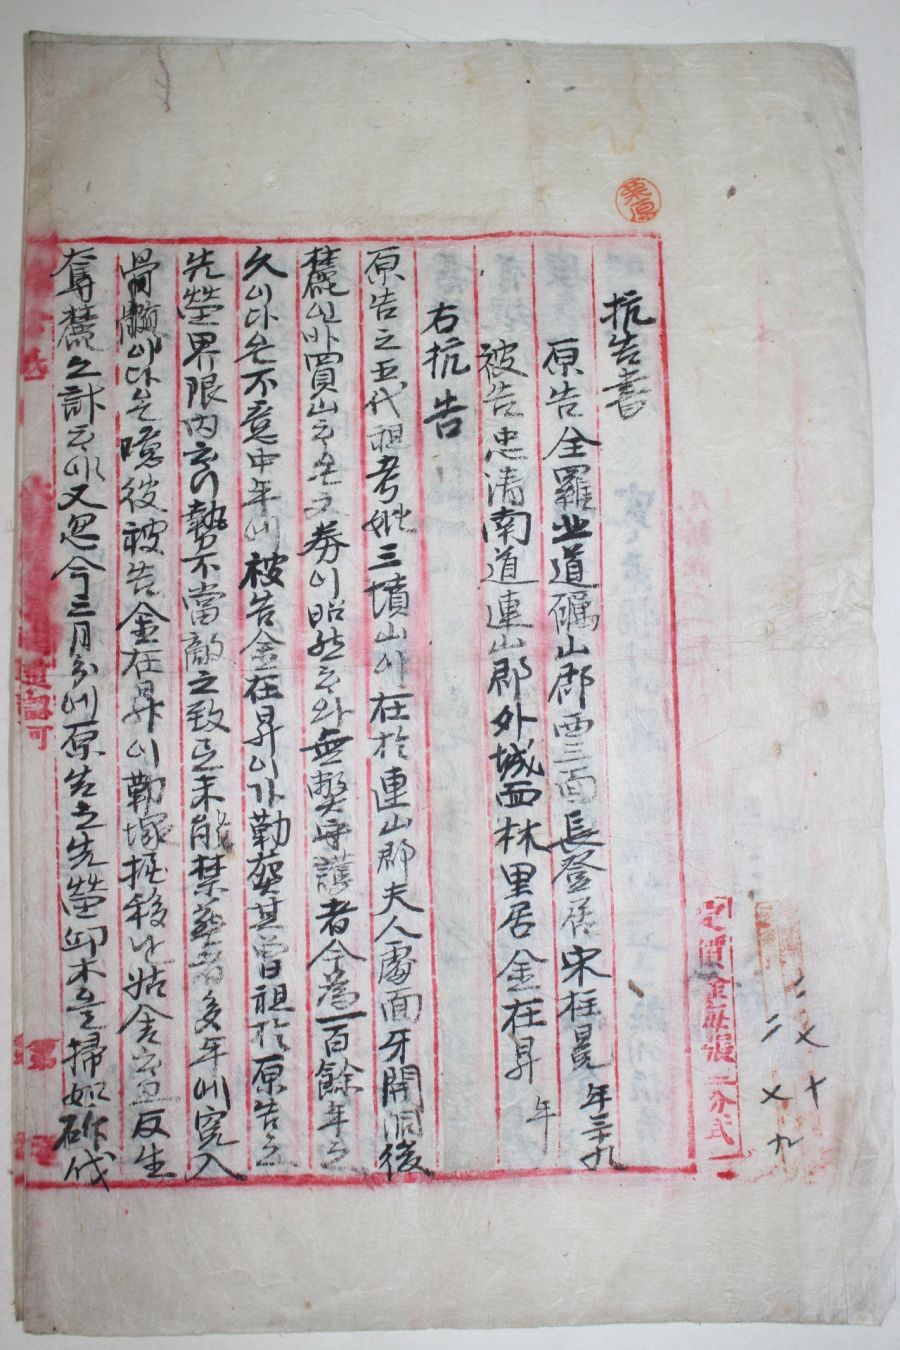 抗告書
原告 全羅北道礪山郡西三面長登居 宋在晃 年三十九
被告 忠淸南道連山郡外城面林里居 金在昇 年
右抗告
原告之五代祖考妣三墳山이 在於連山郡夫人處面牙開洞後
麓이온바 買山文券이 昭然와 無弊守護者 今爲一百餘年之
久이다온 不意中年에 被告金在昇이가 勒葬其曾祖於原告之
先塋界限內 勢不當敵之致로 未能禁葬者 多年에 究入
骨髓이다온 被告金在昇이 勒塚掘移난 姑舍고 反生
奪麓之計야 又忽今三月分에 原告之先塋 木을 掃如斫伐
定價金每張二分式
栗原
認可